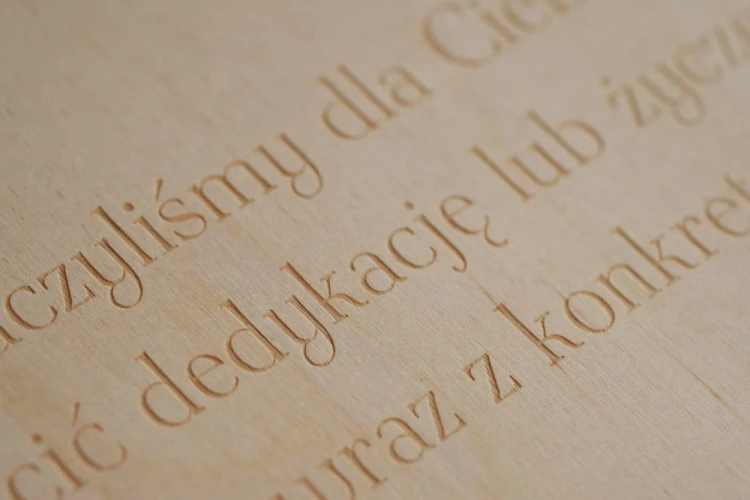 aczyliśmy dla Cieb
cić dedykację lub życze
wraz z konkret